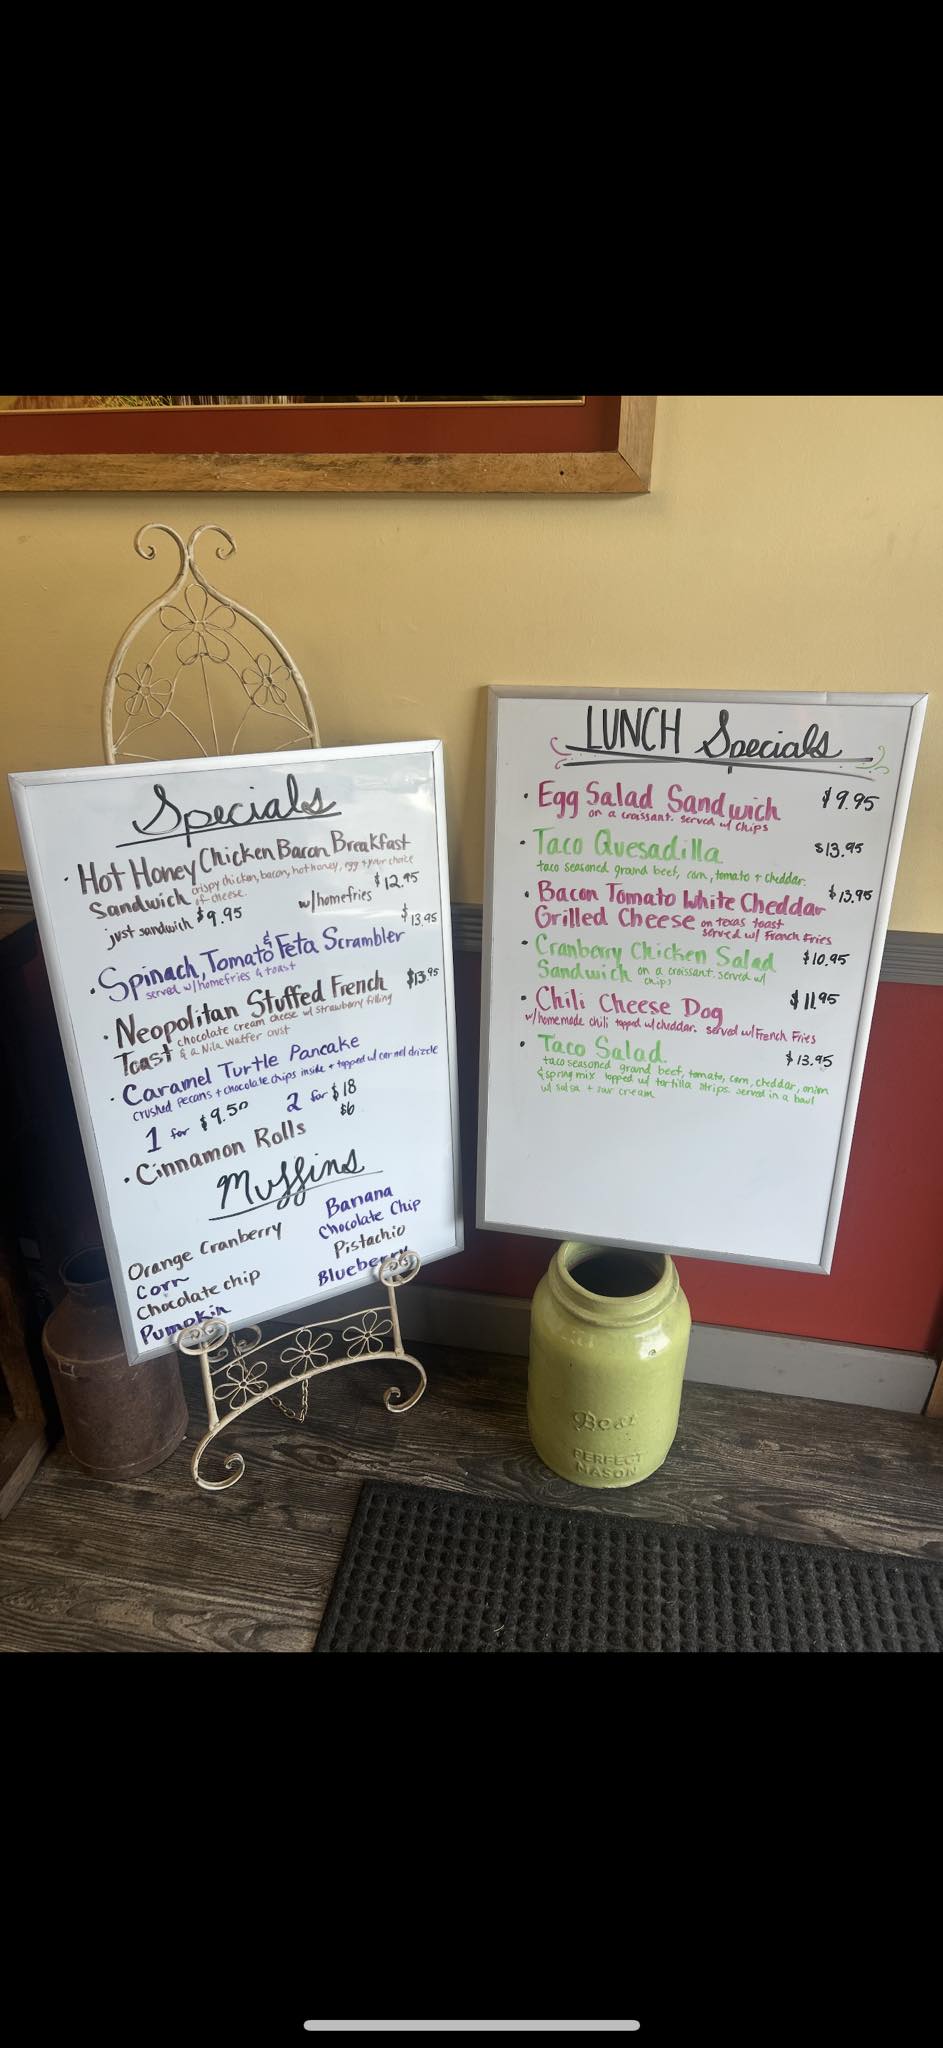 Specials
• Hot Honey Chicken Bacon Breakfast
Sandwich crispy chicken, bacon, hot honey, egg + your choice
of cheese.
just sandwich $9.95 w/homefries $12.95
• Spinach, Tomato & Feta Scrambler $13.95
served w/homefries & toast
• Neopolitan Stuffed French $13.95
Toast chocolate cream cheese w/ strawberry filling
& a Nila Waffer crust
• Caramel Turtle Pancake
crushed pecans + chocolate chips inside + topped w/ carmel drizzle
1 for $9.50 2 for $18
• Cinnamon Rolls $6
Muffins
Orange Cranberry
Corn
Chocolate chip
Pumpkin
Banana
Chocolate Chip
Pistachio
Blueberry
LUNCH Specials
• Egg Salad Sandwich $9.95
on a croissant. served w/ chips
• Taco Quesadilla $13.95
taco seasoned ground beef, corn, tomato + cheddar.
• Bacon Tomato White Cheddar $13.95
Grilled Cheese on texas toast
served w/ French Fries
• Cranberry Chicken Salad $10.95
Sandwich on a croissant. served w/
chips
• Chili Cheese Dog $11.95
w/homemade chili topped w/cheddar. served w/French Fries
• Taco Salad. $13.95
taco seasoned ground beef, tomato, corn, cheddar, onion
& spring mix topped w/ tortilla strips. served in a bowl
w/ salsa + sour cream
Best
PERFECT
MASON